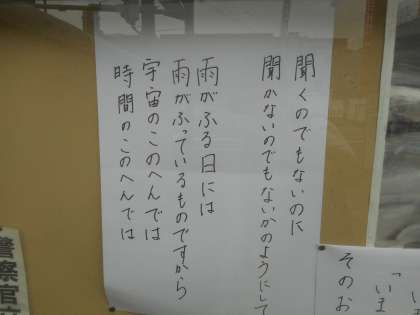 聞くのでもないのに
聞かないのでもないかのようにして
雨がふる日には
雨がふっているものですから
宇宙のこのへんでは
時間のこのへんでは
「いま
そのお
警察官